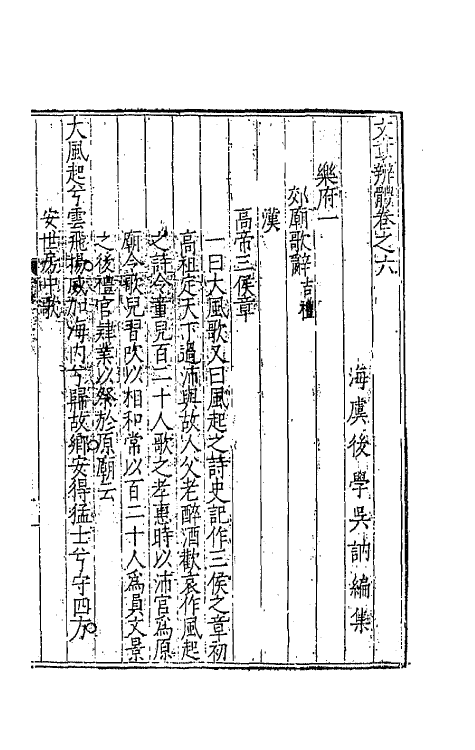 文章辨體卷之六
海虞後學吳訥編集
樂府一
郊廟歌辭吉禮
漢
高帝三侯章
一曰大風歌又曰風起之詩史記作三侯之章初
高祖定天下過沛與故人父老醉酒歡哀作風起
之詩令童兒百二十人歌之孝惠時以沛宮為原
廟令歌兒習吹以相和常以百二十人爲員文景
之後禮官肄業以祭於原廟云
大風起兮雲飛揚威加海內兮歸故鄉安得猛士兮守四方
安世房中歌